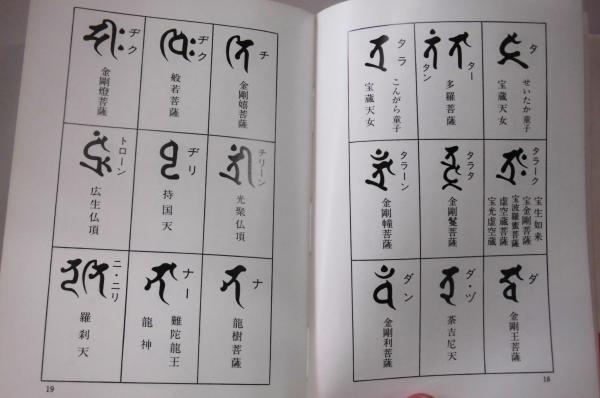 タ
せいたか童子
宝蔵天女
ター
タン
多羅菩薩
タラ
こんがら童子
宝蔵天女
タラーク
宝生如来
宝金剛菩薩
宝波羅蜜菩薩
虚空蔵菩薩
宝光虚空蔵
タラタ
金剛鬘菩薩
タラーン
金剛幢菩薩
ダ
金剛王菩薩
ダ・ヅ
茶吉尼天
ダン
金剛利菩薩
18
チ
金剛嬉菩薩
ヂク
般若菩薩
ヂク
金剛燈菩薩
チリーン
光聚仏頂
ヂリ
持国天
トローン
広生仏頂
ナ
龍樹菩薩
ナー
難陀龍王
龍神
ニ・ニリ
羅刹天
19